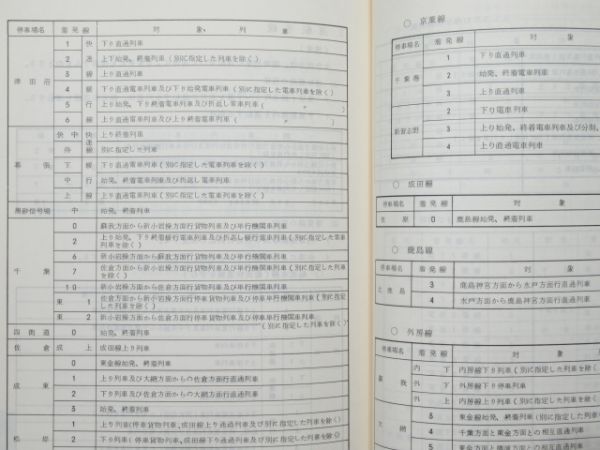 停車場名 着発線 対象列車
津田沼
1 快 下り直通列車
2 速 上下始発、終着列車（別に指定した列車を除く）
3 線 上り直通列車
4 緩 下り直通電車列車及び下り始発電車列車（別に指定した電車列車を除く）
5 行 上り始発、下り終着電車列車及び折返し電車列車（ 〃 ）
6 線 上り直通電車列車及び上り終着電車列車（ 〃 ）
幕張
快中 快 上り終着列車
待 速線 別に指定した列車
下 緩 下り直通電車列車（別に指定した電車列車を除く）
中 行 始発、終着電車列車及び折返し電車列車
上 線 上り直通電車列車（別に指定した電車列車を除く）
信号場 中 始発、終着列車
千葉
0 蘇我方面から新小岩操方面行貨物列車及び単行機関車列車
2 上り始発、下り終着緩行電車列車及び折返し緩行電車列車（別に指定した電車列車を除く）
6 新小岩操方面から蘇我方面行貨物列車及び単行機関車列車
7 佐倉方面から新小岩操方面行貨物列車及び単行機関車列車（別に指定した列車を除く）
10 新小岩操方面から佐倉方面行貨物列車及び単行機関車列車
東1 佐倉方面から新小岩操方面行停車貨物列車及び単行機関車列車（別に指定した列車を除く）
東2 新小岩操方面から佐倉方面行停車貨物列車及び単行機関車列車（別に指定した列車を除く）
四街道 0 始発、終着列車
佐倉 成上 成田線上り列車
成東
0 東金線始発、終着列車
1 上り列車及び大網方面からの佐倉方面行直通列車
2 下り列車及び佐倉方面からの大網方面行直通列車
3 始発、終着列車
松岸
1 上り列車（停車貨物列車、成田線上り通過列車及び別に指定した列車を除く）
2 下り列車（停車貨物列車、成田線下り通過列車及び別に指定した列車を除く）
○ 京葉線
停車場名 着発線 対象
千葉港
1 下り直通列車
2 始発、終着列車
3 上り直通列車
新習志野
2 下り電車列車
3 上り始発、終着電車列車及び分割、
4 上り直通電車列車
○ 成田線
停車場名 着発線 対象
佐原 0 鹿島線始発、終着列車
○ 鹿島線
停車場名 着発線 対象
北鹿島
3 鹿島神宮方面から水戸方面行直通列車
4 水戸方面から鹿島神宮方面行直通列車
○ 外房線
停車場名 着発線 対象
蘇我
内下 内房線下り列車（別に指定した列車を除く）
外下 外房線下り停車列車
外上 内房線上り列車（別に指定した列車を除く）
大網
3 東金線始発、終着列車（別に指定した列車を除
4 千葉方面と東金方面との相互直通
5 東金方面と勝浦方面との相互直通